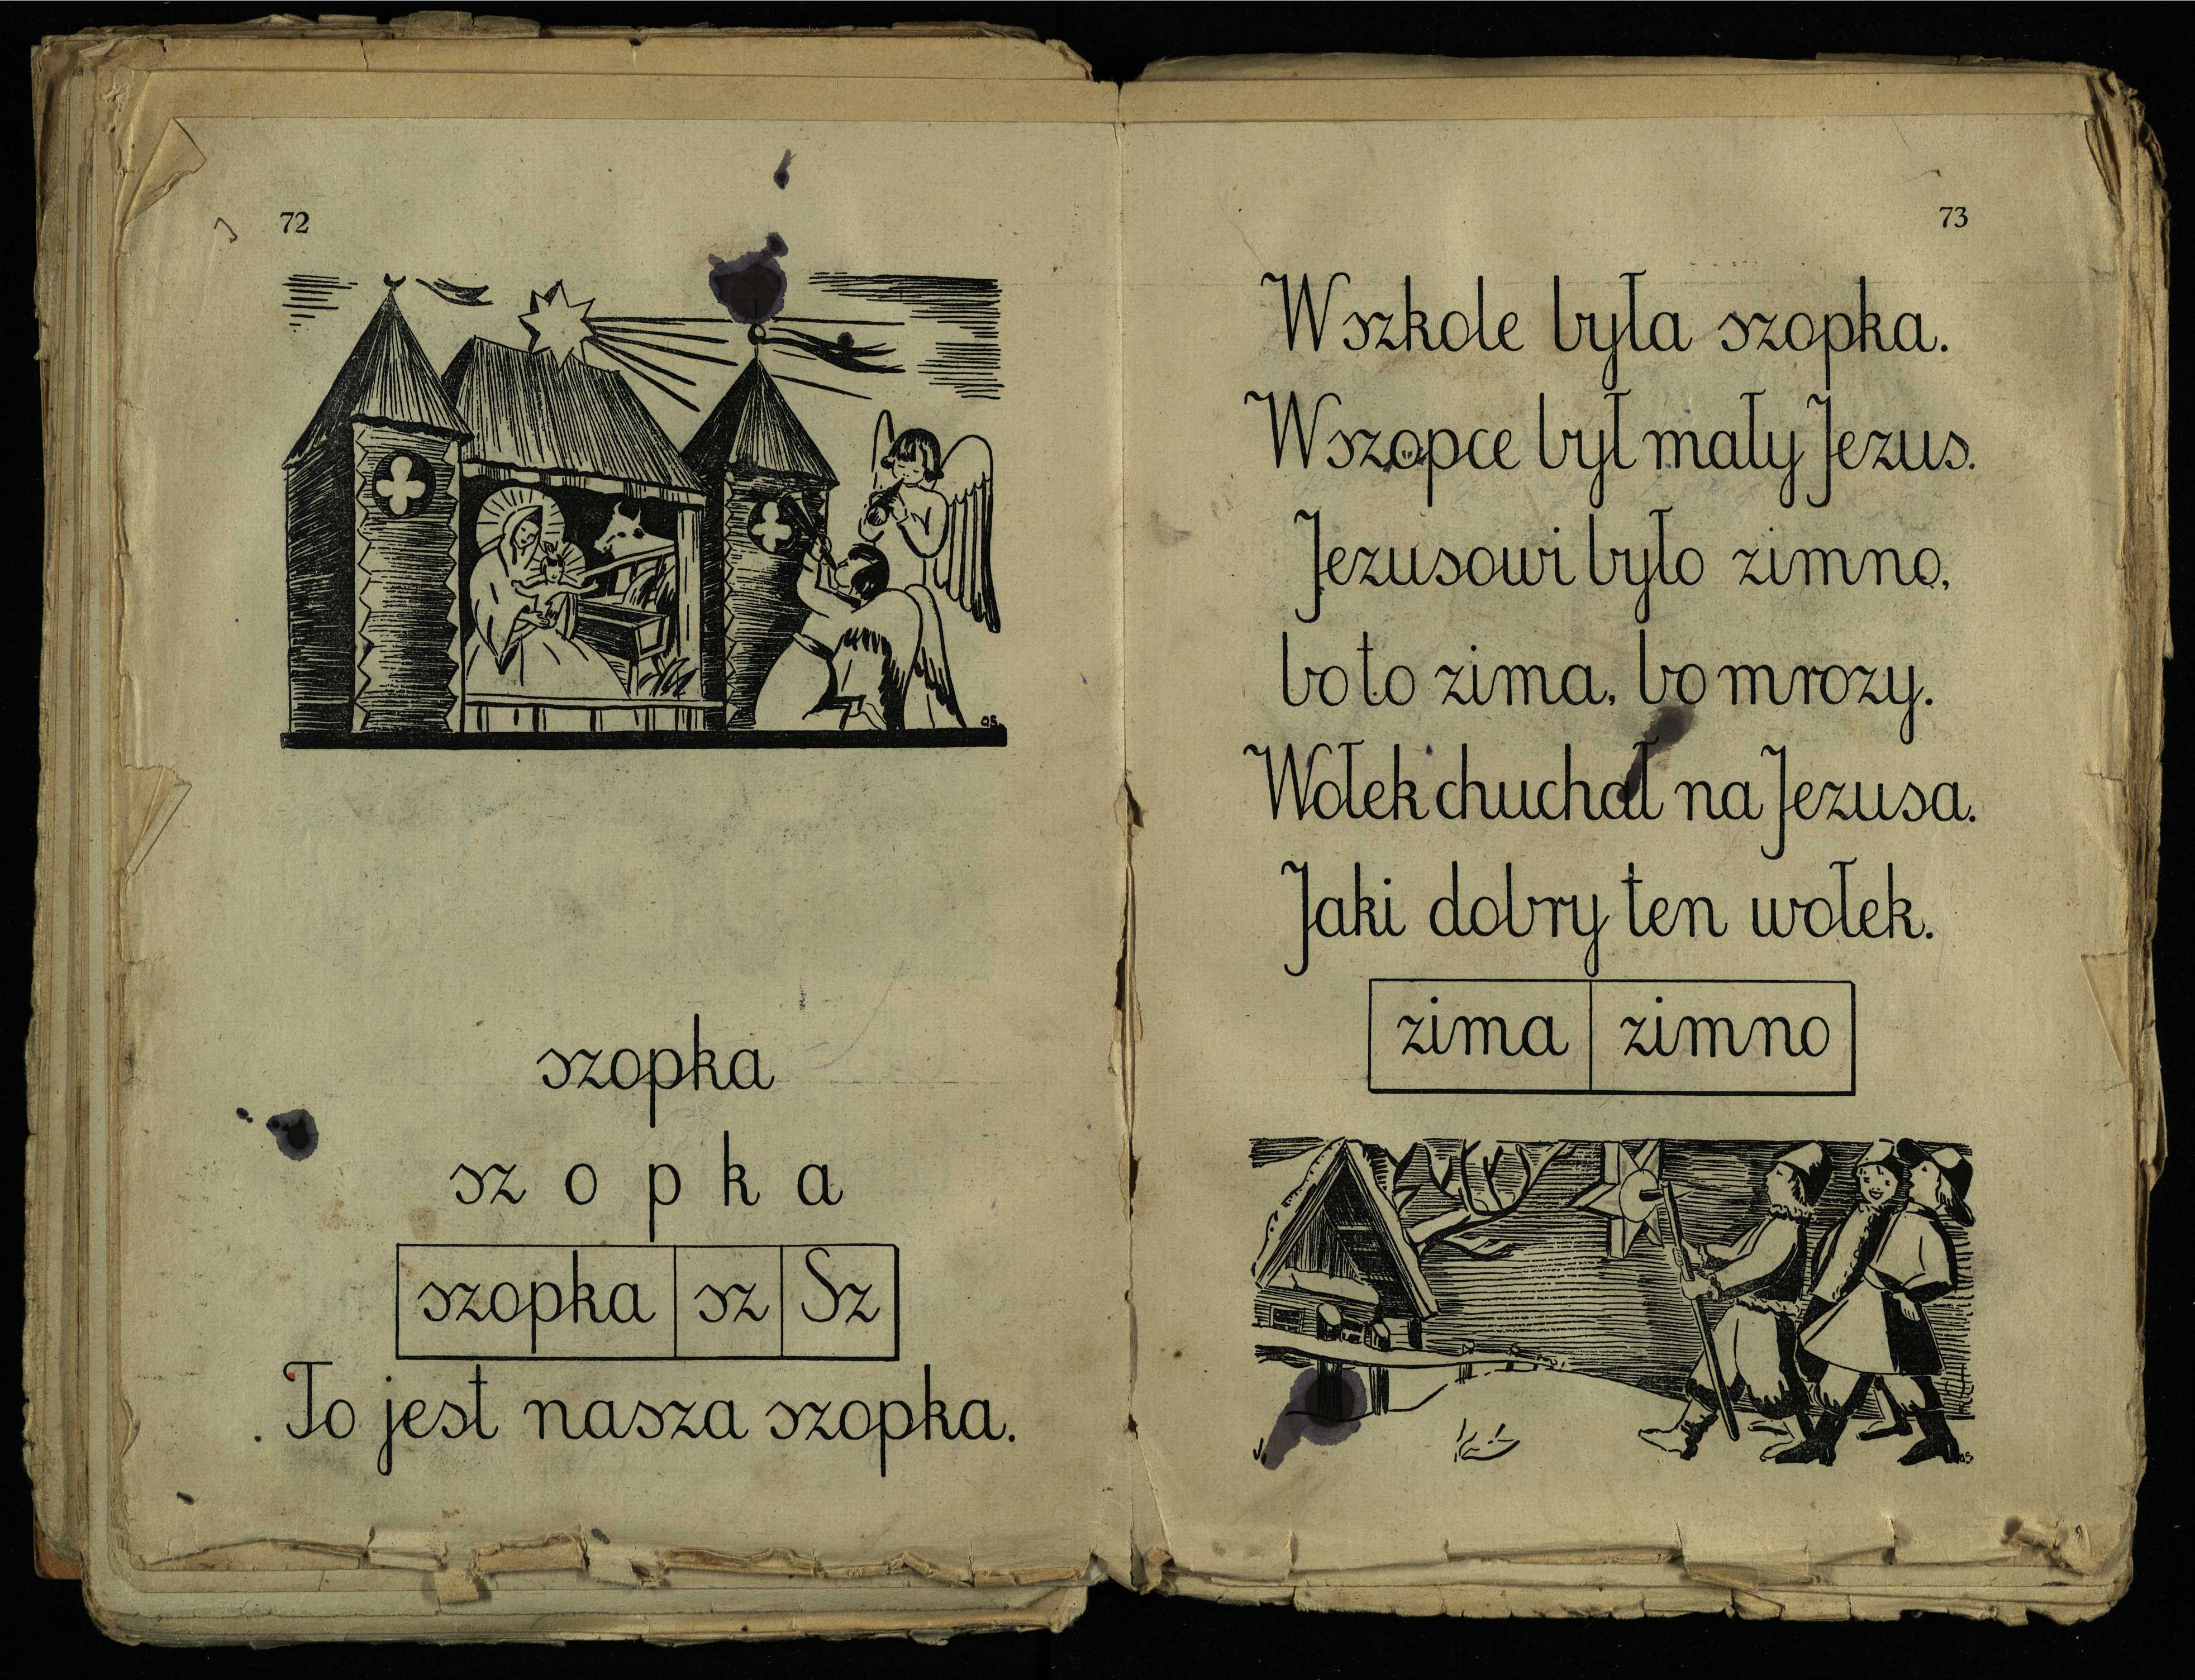 72
szopka
sz o p k a
szopka sz Sz
To jest nasza szopka.
73
W szkole była szopka.
W szopce był mały Jezus.
Jezusowi było zimno,
bo to zima, bo mrozy.
Wołek chuchał na Jezusa.
Jaki dobry ten wołek.
zima zimno